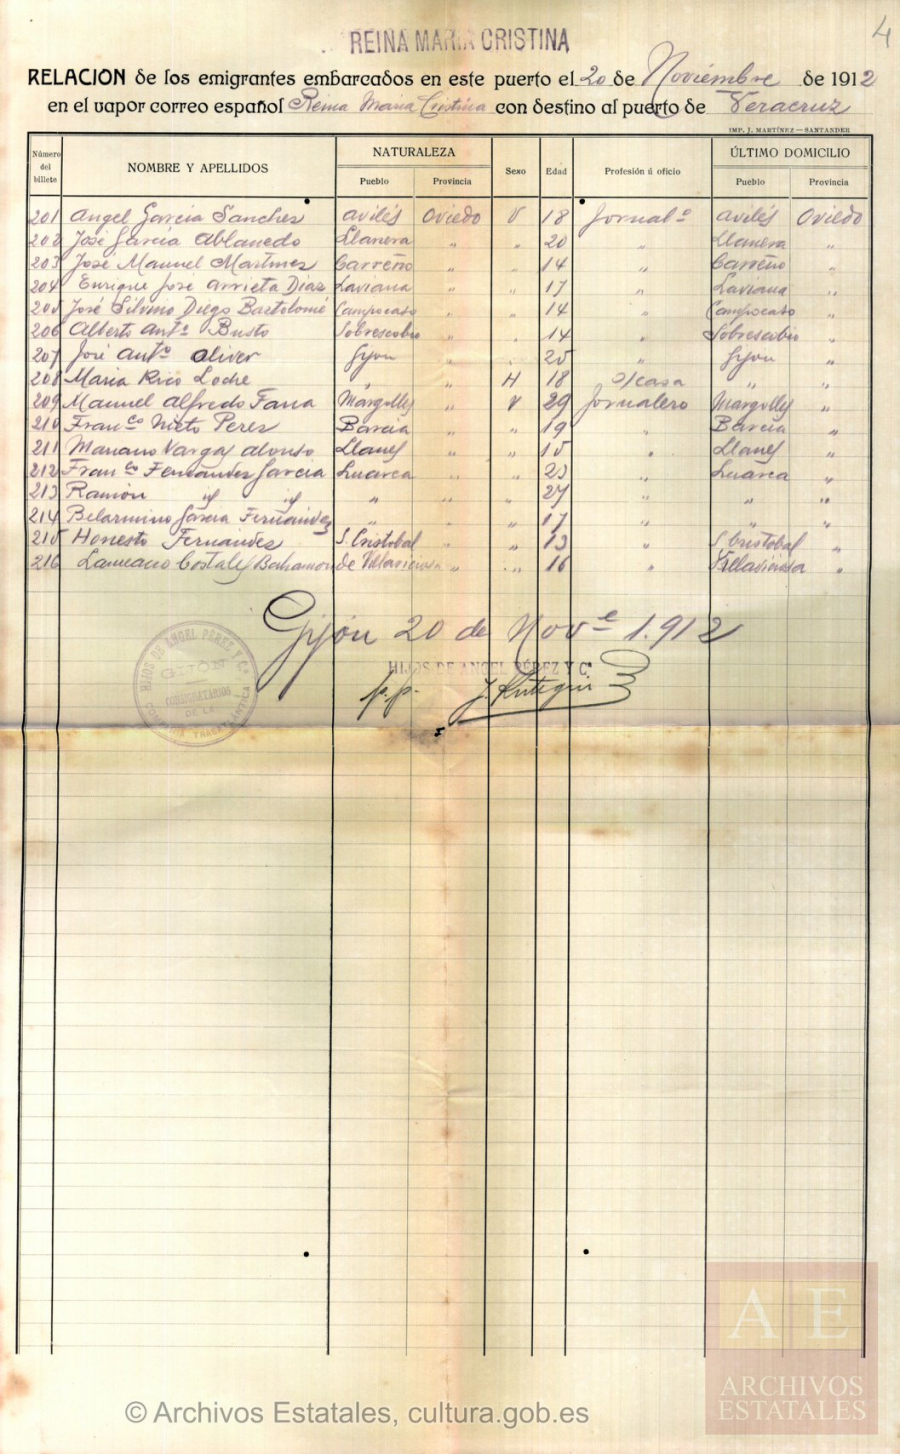 4
REINA MARIA CRISTINA
RELACION de los emigrantes embarcados en este puerto el 20 de Noviembre de 1912
en el vapor correo español Reina Maria Cristina con destino al puerto de Veracruz
IMP. J. MARTÍNEZ — SANTANDER
Número del billete NOMBRE Y APELLIDOS NATURALEZA Pueblo Provincia Sexo Edad Profesión ú oficio ÚLTIMO DOMICILIO Pueblo Provincia
201 Angel Garcia Sanchez Avilés Oviedo V 18 Jornalº Avilés Oviedo
202 José Garcia Ablanedo Llanera " " 20 " Llanera "
203 José Manuel Martinez Carreño " " 14 " Carreño "
204 Enrique José Arrieta Diaz Laviana " " 17 " Laviana "
205 José Silvino Diego Bartolomé Campocaso " " 14 " Campocaso "
206 Alberto Antº Busto Sobrescobio " " 14 " Sobrescobio "
207 José Antº Oliver Gijon " " 20 " Gijon "
208 Maria Rico Loche " " H 18 s/casa " "
209 Manuel Alfredo Fana Margolles " V 29 Jornalero Margolles "
210 Franco Nieto Perez Barcia " " 19 " Barcia "
211 Mariano Vargas Alonso Llanes " " 15 " Llanes "
212 Franco Fernandez Garcia Luarca " " 23 " Luarca "
213 Ramón id id " " " 27 " " "
214 Belarmino Garcia Fernández " " " 17 " " "
215 Honesto Fernandez S. Cristobal " " 13 " S. Cristobal "
216 Laureano Costales Bahamon de Villaviciosa " " 16 " Villaviciosa "
Gijón 20 de Nove 1.912
HIJOS DE ANGEL PÉREZ Y Cª
p.p.
HIJOS DE ANGEL PEREZ Y Cª
GIJÓN
CONSIGNATARIOS
DE LA
COMPAÑIA TRASATLANTICA
AE
ARCHIVOS
ESTATALES
© Archivos Estatales, cultura.gob.es